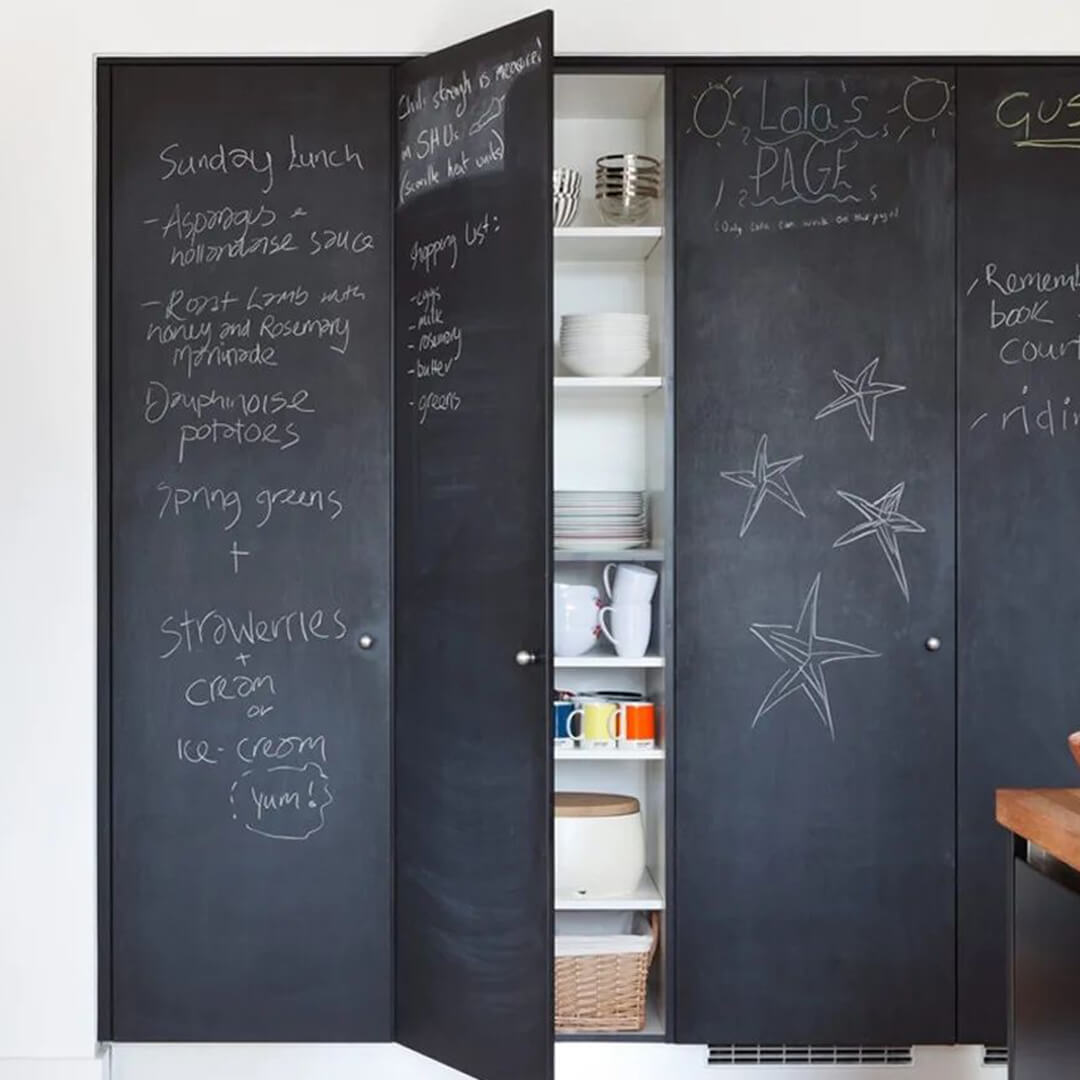 Sunday Lunch
- Asparagus +
hollandaise sauce
- Roast Lamb with
honey and Rosemary
Marinade
Dauphinoise
potatoes
Spring greens
+
Strawerries
+
cream
or
Ice-cream
(Yum!)
Chili strength is measured
in SHUs
(scoville heat units)
Shopping List:
- eggs
- milk
- rosemary
- butter
- greens
Lola's
PAGE
(Only Lola can write on this page)
GUS
- Rememb
book
court
- ridin